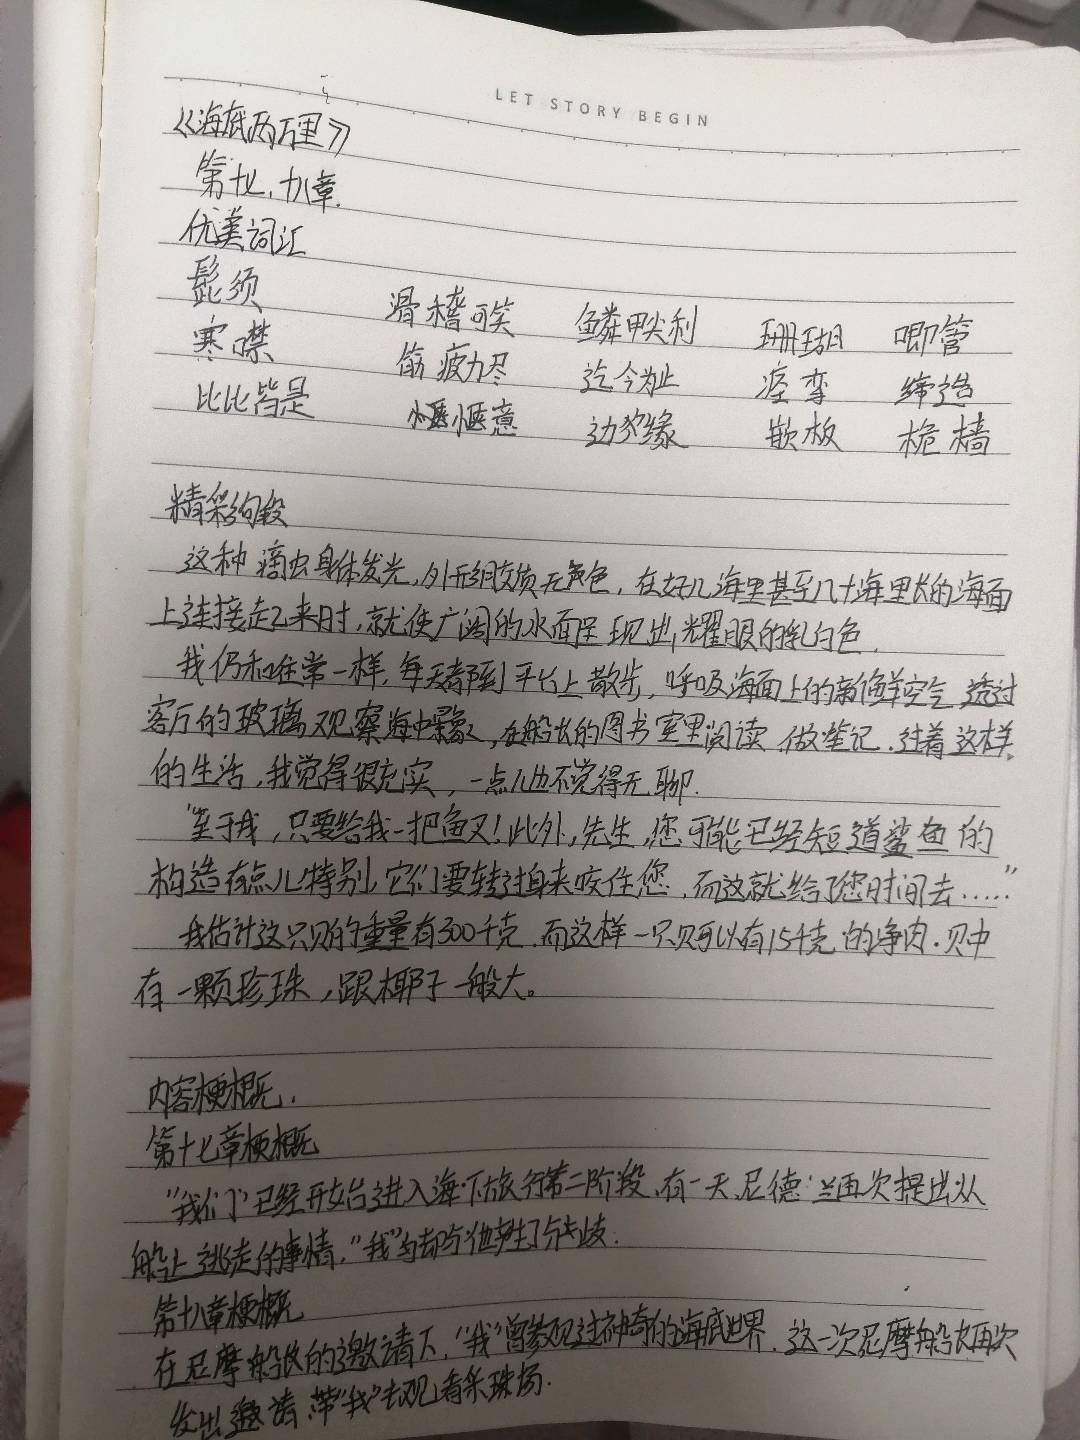 LET STORY BEGIN
《海底两万里》
第十七、十八章.
优美词汇
髭须 滑稽可笑 鳞甲尖利 珊瑚 唧管
寒噤 筋疲力尽 迄今为止 痉挛 缔造
比比皆是 惬惬意 边缘 嵌板 桅樯
精彩句段
这种滴虫身体发光,外形细胶质无色,在好几海里甚至几十海里长的海面
上连接起来时,就使广阔的水面呈现出耀眼的乳白色.
我仍和往常一样,每天都到平台上散步,呼吸海面上的新鲜空气 透过
客厅的玻璃观察海中景象,在船长的图书室里阅读 做笔记.过着这样
的生活,我觉得很充实,一点儿也不觉得无聊.
"至于我,只要给我一把鱼叉!此外,先生,您可能已经知道鲨鱼的
构造有点儿特别,它们要转过身来咬住您,而这就给了您时间去……"
我估计这只贝的重量有300千克 而这样一只贝可以有15千克的净肉.贝中
有一颗珍珠,跟椰子一般大。
内容梗概.
第十七章梗概
"我们"已经开始进入海下旅行第二阶段,有一天,尼德·兰再次提出从
船上逃走的事情,"我"却与他产生了分歧.
第十八章梗概
在尼摩船长的邀请下,"我"曾参观过神奇的海底世界.这一次尼摩船长再次
发出邀请,带"我"去观看采珠场.